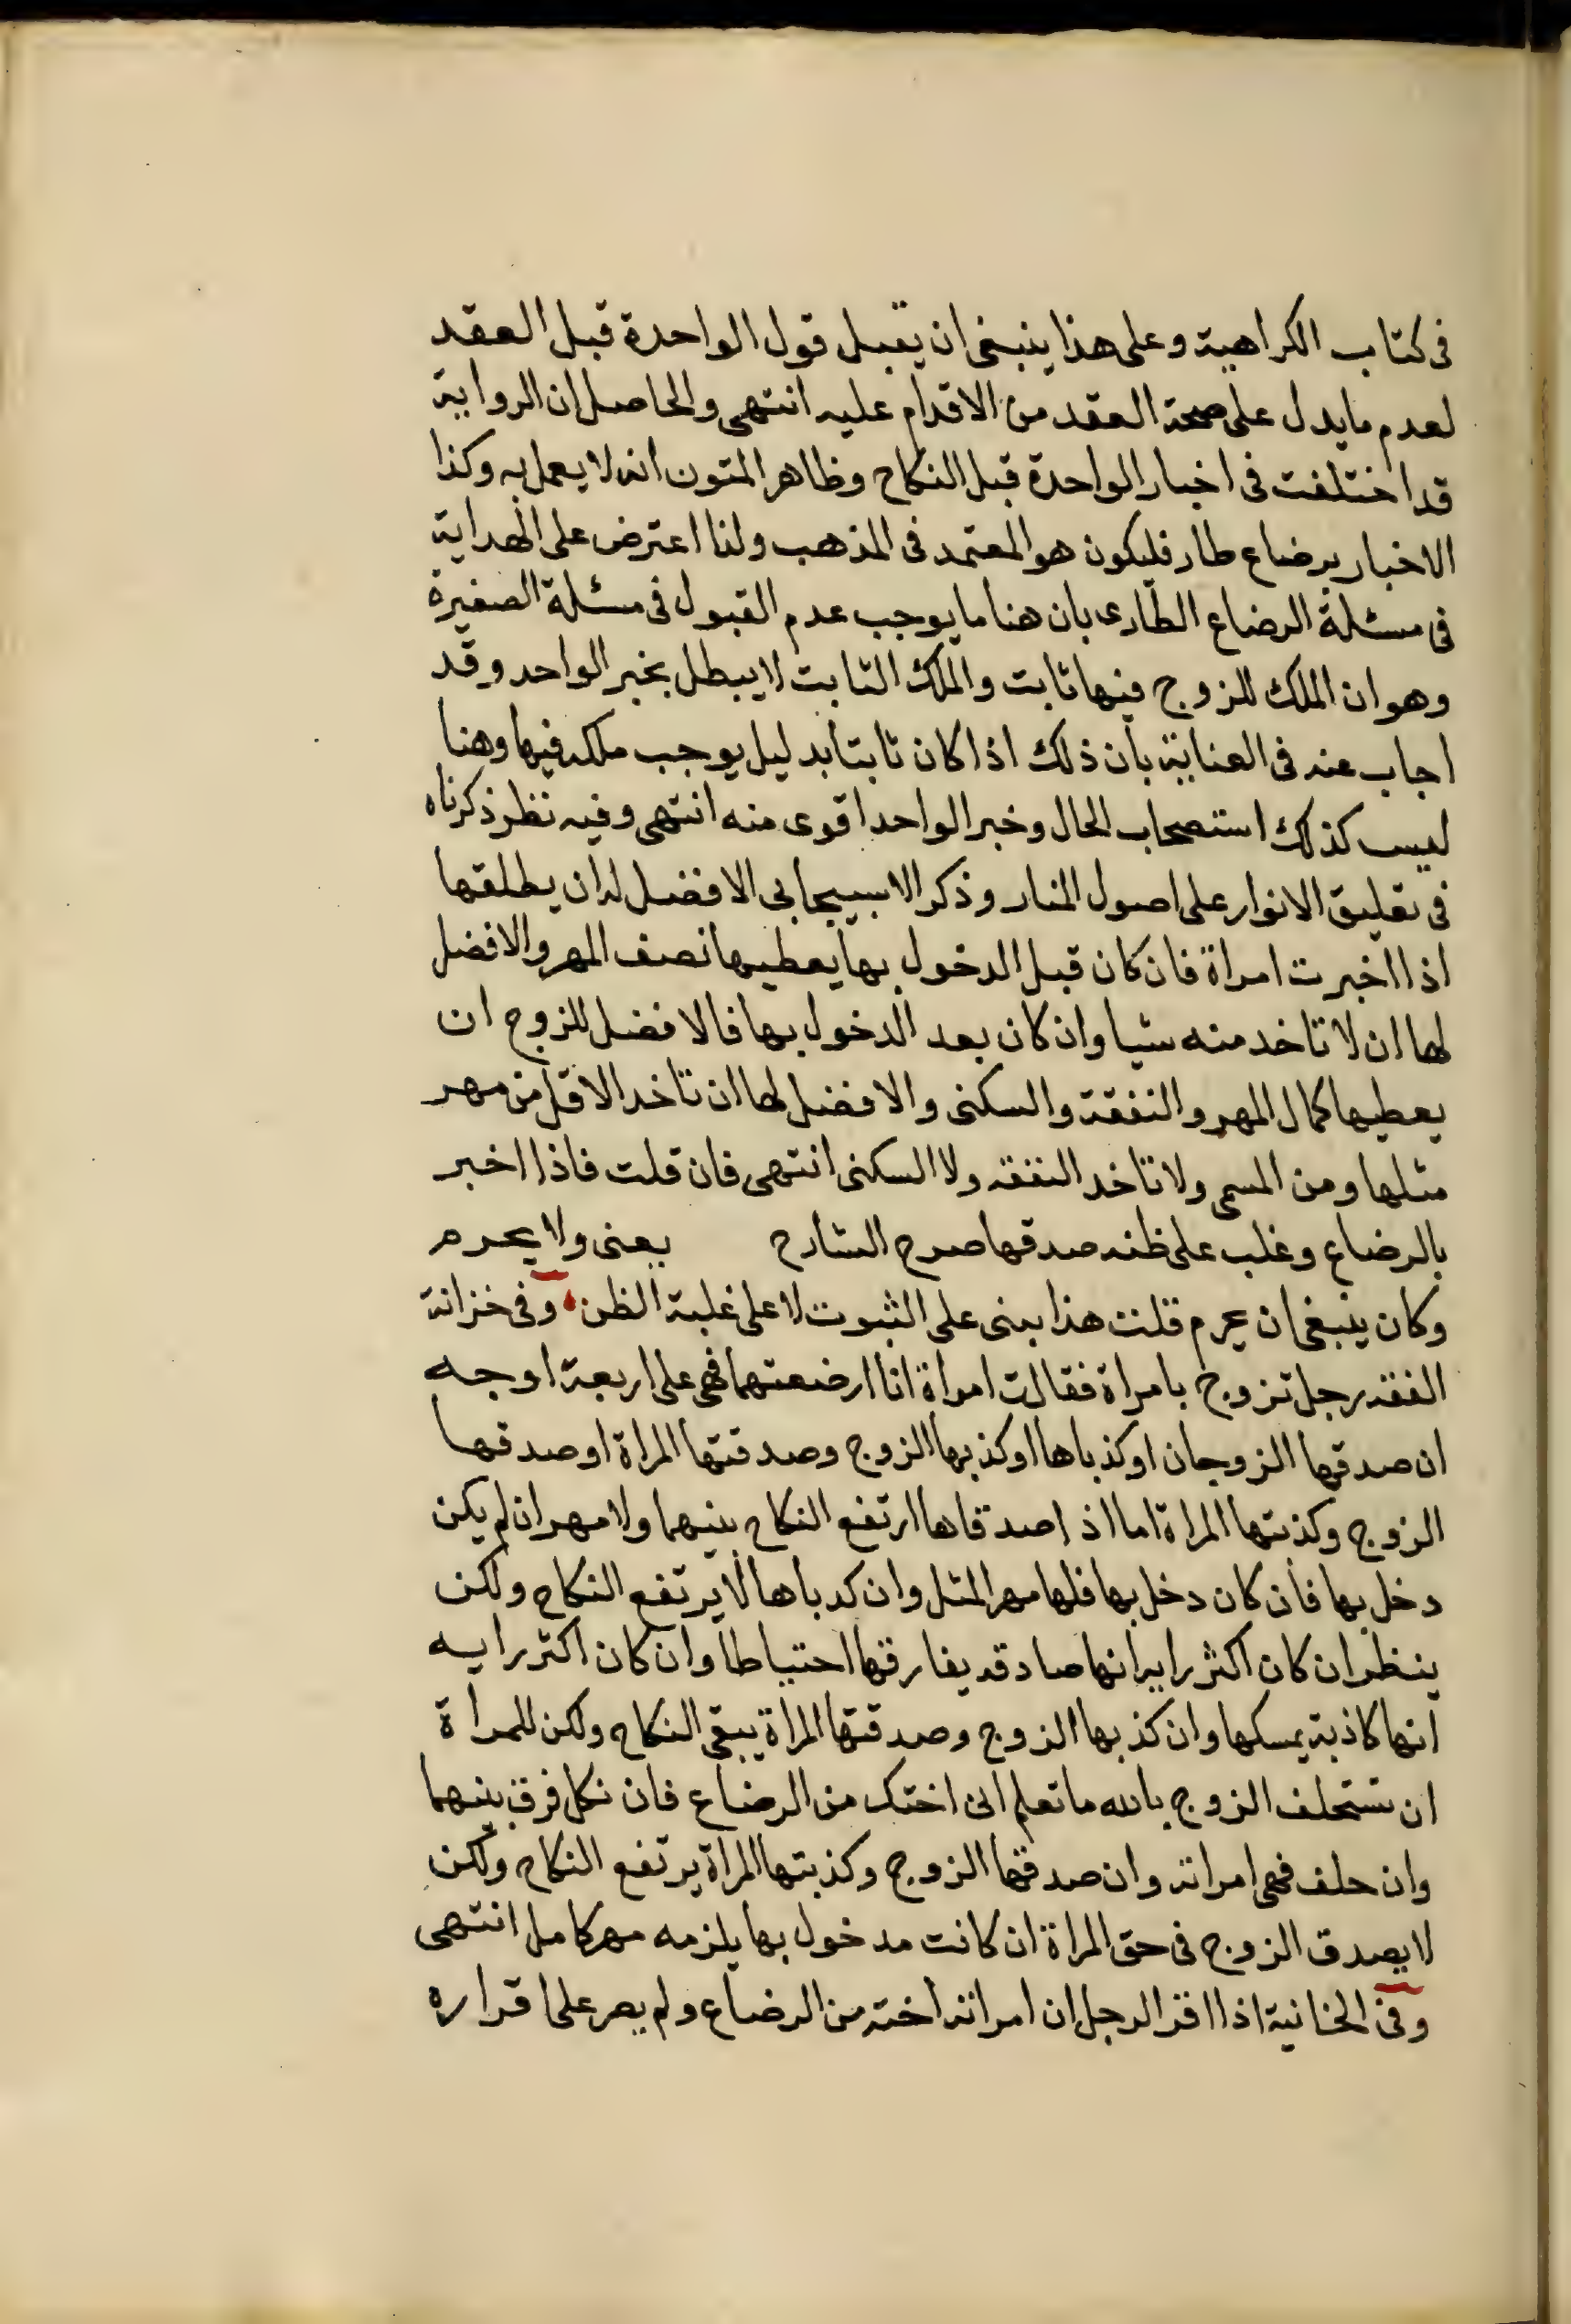 فى كتاب الكراهية وعلى هذا ينبغى ان يقبل قول الواحدة قبل العقد
لعدم ما يدل على صحة العقد من الاقدام عليه انتهى والحاصل ان الرواية
قد اختلفت فى اخبار الواحدة قبل النكاح وظاهر المتون انه لا يعمل به وكذا
الاخبار برضاع طار فليكون هو المعتمد فى المذهب ولنا اعترض على الهداية
فى مسئلة الرضاع الطارى بان هنا ما يوجب عدم القبول فى مسئلة الصغيرة
وهو ان الملك للزوج فيها ثابت والملك الثابت لا يبطل بخبر الواحد وقد
اجاب عنه فى العناية بان ذلك اذا كان ثابتا بدليل يوجب ملكه فيها وهنا
ليس كذلك استصحاب الحال وخبر الواحد اقوى منه انتهى وفيه نظر ذكرناه
فى تعليق الانوار على اصول المنار وذكر الاسبيجابى الافضل له ان يطلقها
اذا اخبرت امراة فان كان قبل الدخول بها يعطيها نصف المهر والافضل
لها ان لا تاخد منه شيا وان كان بعد الدخول بها فالافضل للزوج ان
يعطيها كمال المهر والنفقة والسكنى والافضل لها ان تاخد الاقل من مهر
مثلها ومن المسمى ولا تاخد النفقه ولا السكنى انتهى فان قلت فاذا اخبر
بالرضاع وغلب على ظنه صدقها صرح الشارح يعنى ولا يحرم
وكان ينبغى ان يحرم قلت هذا يبنى على الثبوت لا على غلبة الظن وفى خزانة
الفقه رجل تزوج بامراة فقالت امراة انا ارضعتهما فهى على اربعة اوجه
ان صدقها الزوجان او كذباها او كذبها الزوج وصدقتها المراة او صدقها
الزوج وكذبتها المراة اما اذا صدقاها ارتفع النكاح بينهما ولا مهر ان لم يكن
دخل بها فان كان دخل بها فلها مهر المثل وان كدباها لا يرتفع النكاح ولكن
ينظر ان كان اكثر رايه انها صادقه يفارقها احتياطا وان كان اكثر رايه
انها كاذبة يمسكها وان كذبها الزوج وصدقتها المراة يبقى النكاح ولكن للمراة
ان تستحلف الزوج بالله ما تعلم انى اختك من الرضاع فان نكل فرق بينهما
وان حلف فهى امراته وان صدقها الزوج وكذبتها المراة يرتفع النكاح ولكن
لا يصدق الزوج فى حق المراة ان كانت مدخول بها يلزمه مهر كامل انتهى
وفى الخانية اذا اقر الرجل ان امراته اخته من الرضاع ولم يصر على اقراره